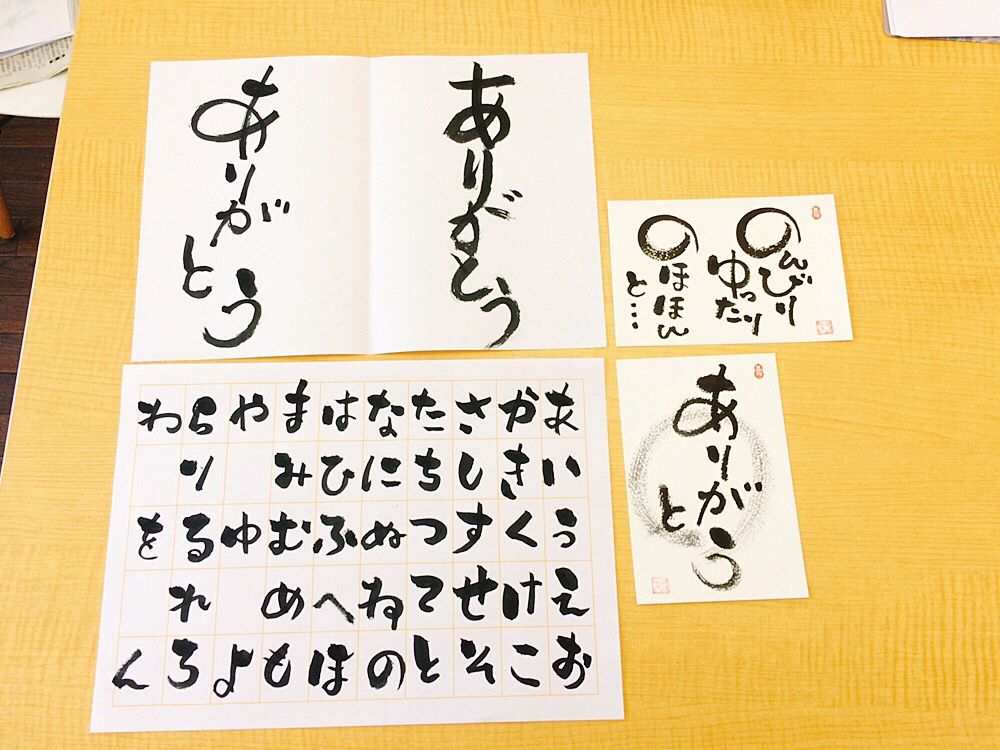 ありがとう
ありがとう
のんびり
ゆったり
のほほん
と…
ありがとう
あいうえお
かきくけこ
さしすせそ
たちつてと
なにぬねの
はひふへほ
まみむめも
やゆよ
らりるれろ
わをん